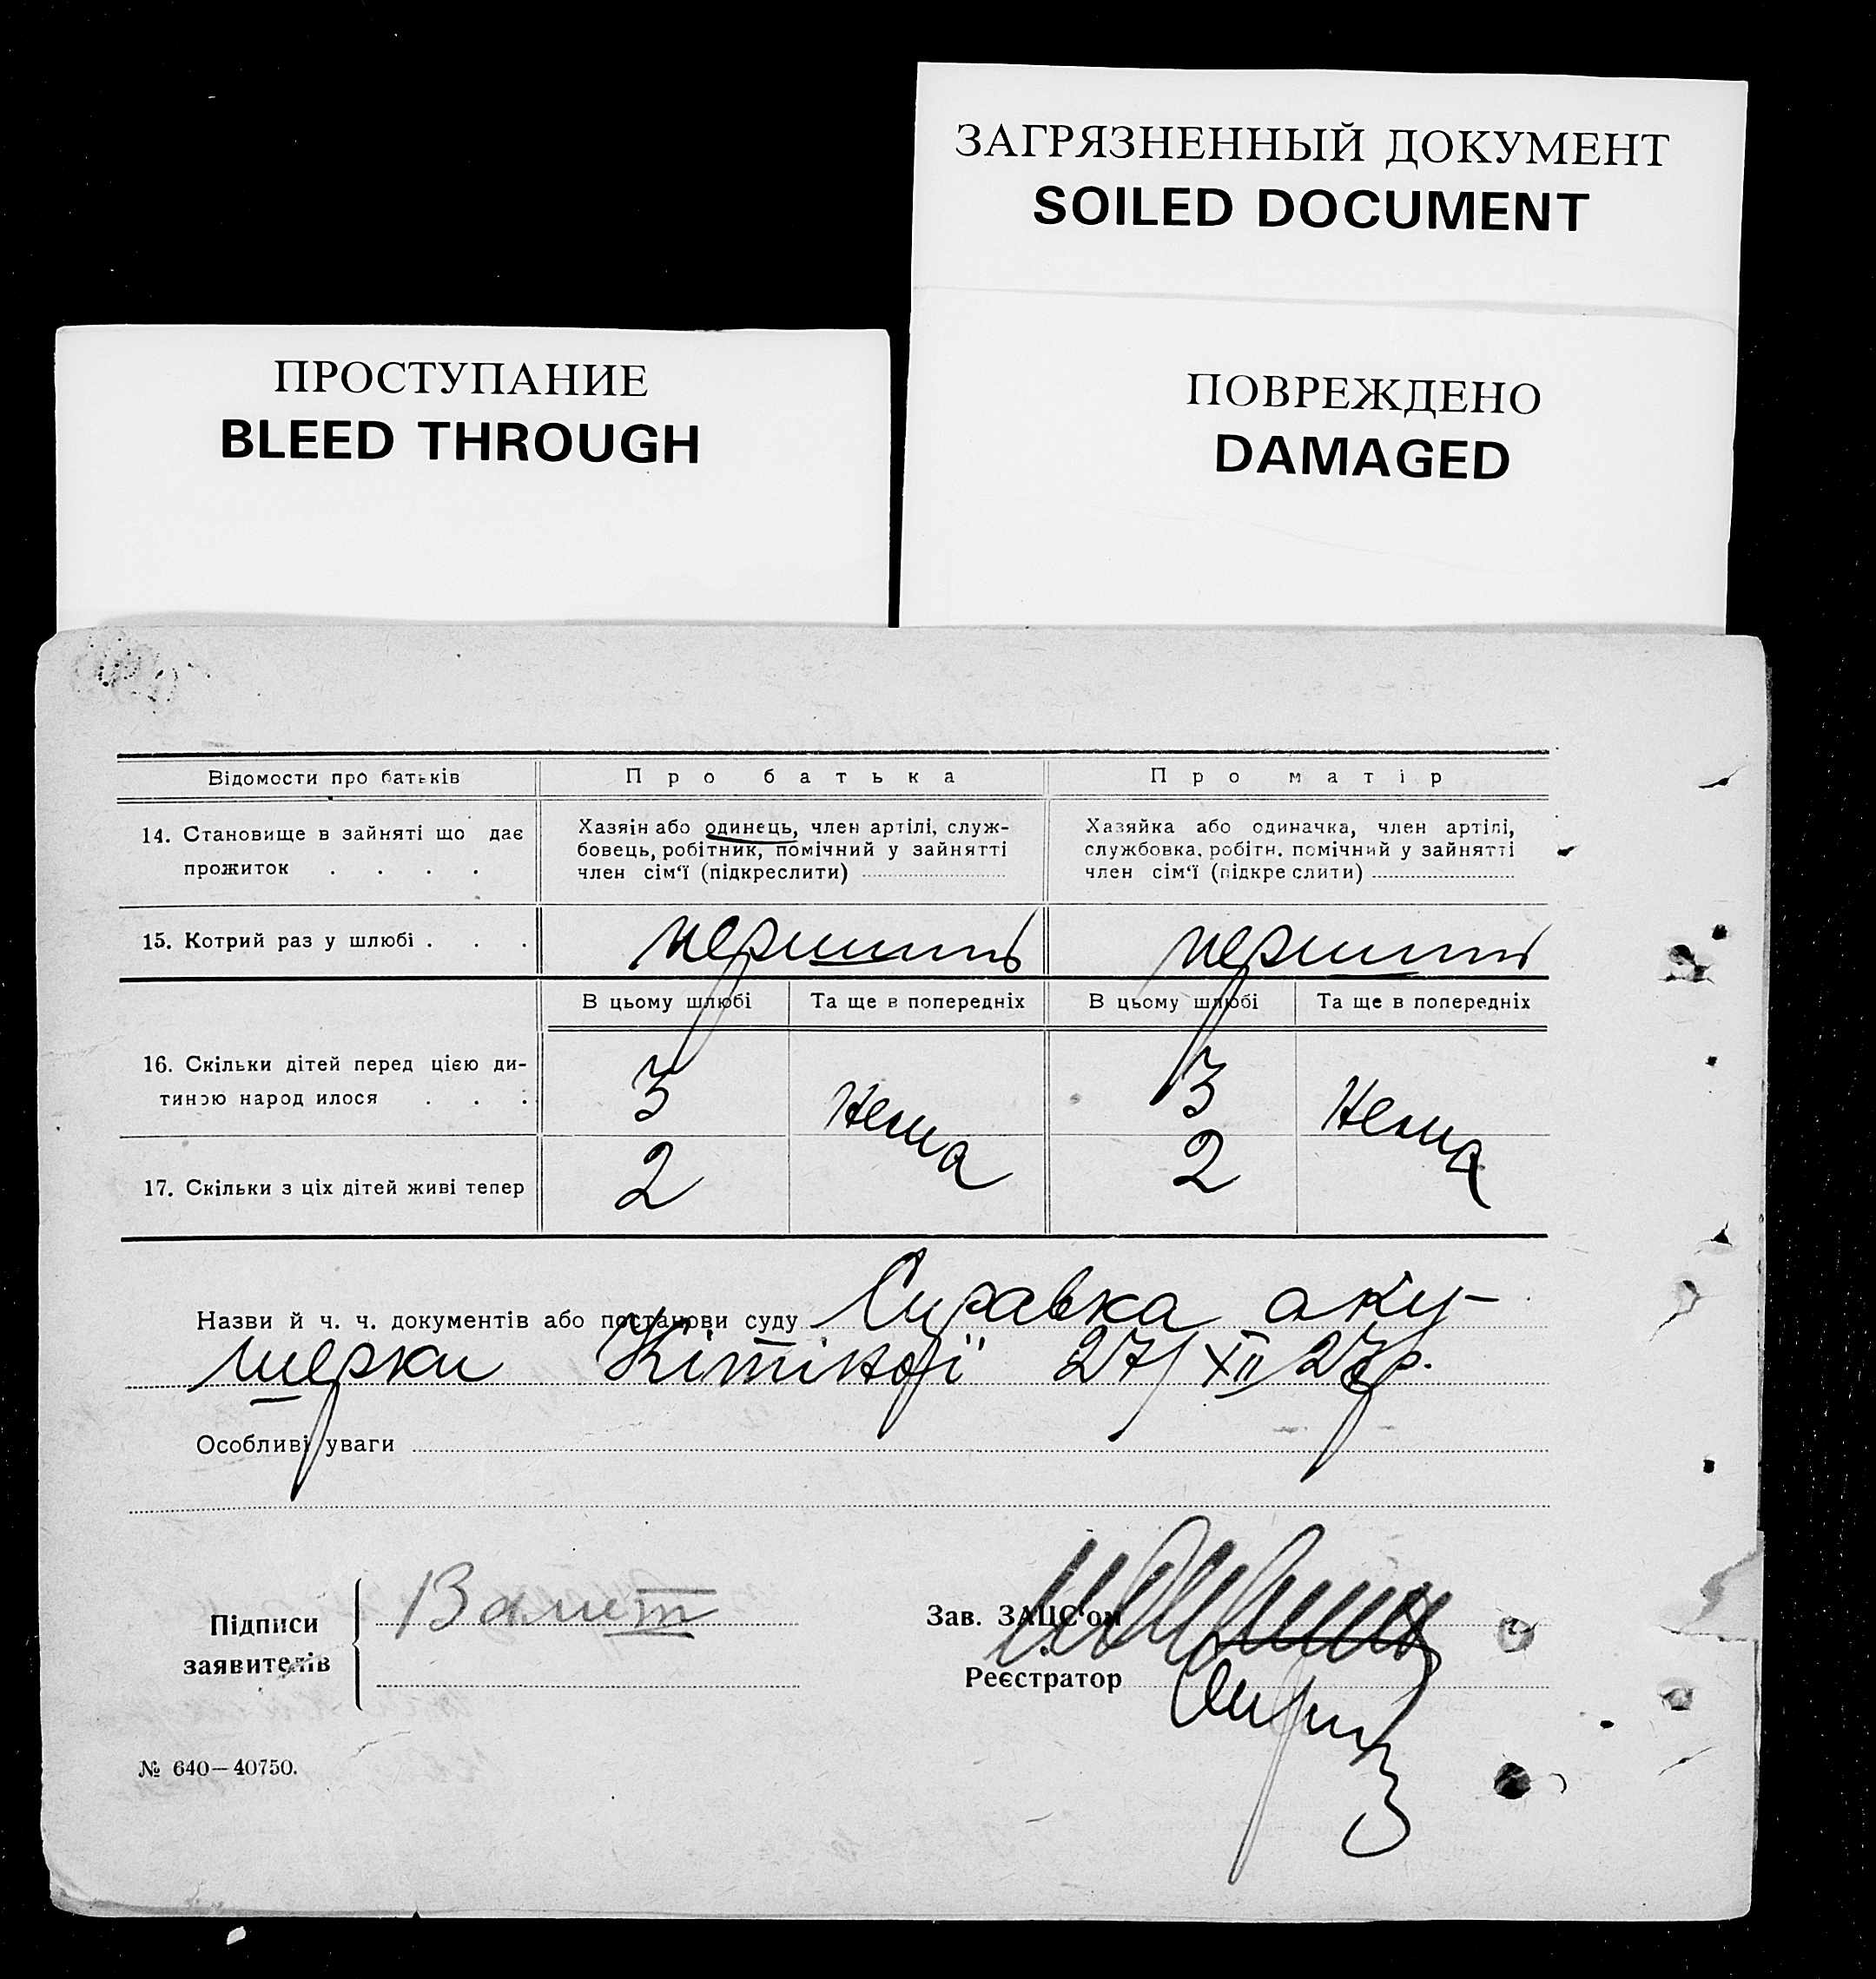 ЗАГРЯЗНЕННЫЙ ДОКУМЕНТ
SOILED DOCUMENT
ПРОСТУПАНИЕ
BLEED THROUGH
ПОВРЕЖДЕНО
DAMAGED
Відомости про батьків
Про батька
Про матір
14. Становище в зайняті що дає
прожиток . . . .
Хазяін або одинець, член артілі, служ-
бовець, робітник, помічний у зайнятті
член сім'ї (підкреслити)
Хазяйка або одиначка, член артілі,
службовка, робітн. помічний у зайнятті
член сім'ї (підкреслити)
15. Котрий раз у шлюбі . . .
перший
перший
В цьому шлюбі
Та ще в попередніх
В цьому шлюбі
Та ще в попередніх
16. Скільки дітей перед цією ди-
тиною народилося . . .
3
Нема
3
Нема
17. Скільки з ціх дітей живі тепер
2
2
Назви й ч. ч. документів або постанови суду Справка аку-
шерки 27/XII 27р.
Особливі уваги
Підписи
заявителів
Зав. ЗАЦС'ом
Реєстратор
№ 640—40750.